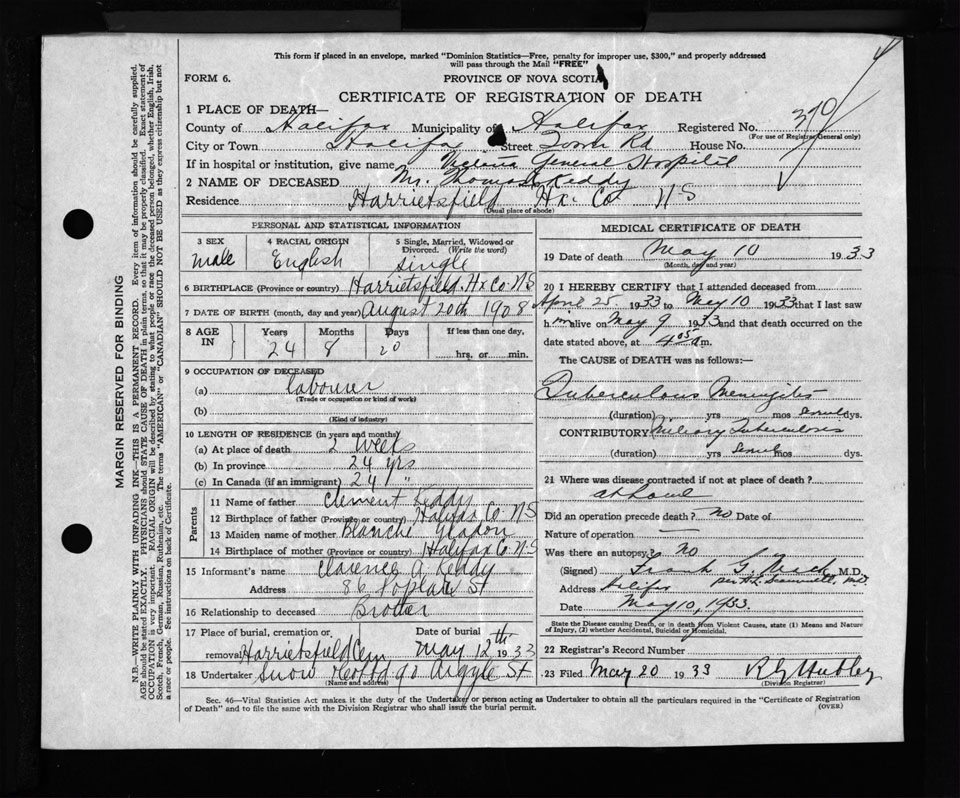 This form if placed in an envelope, marked "Dominion Statistics—Free, penalty for improper use, $300," and properly addressed
will pass through the Mail "FREE"
FORM 6.
PROVINCE OF NOVA SCOTIA
CERTIFICATE OF REGISTRATION OF DEATH
1 PLACE OF DEATH—
County of Halifax Municipality of Halifax Registered No. 370
(For use of Registrar General only)
City or Town Halifax Street Tower Rd House No.
If in hospital or institution, give name Victoria General Hospital
2 NAME OF DECEASED Mr. Thomas Keddy
Residence Harrietsfield Hx. Co. N S
(Usual place of abode)
PERSONAL AND STATISTICAL INFORMATION
3 SEX
male
4 RACIAL ORIGIN
English
5 Single, Married, Widowed or
Divorced. (Write the word)
Single
6 BIRTHPLACE (Province or country) Harrietsfield, Hx Co. N S
7 DATE OF BIRTH (month, day and year) August 20th 1908
8 AGE
IN
Years Months Days If less than one day,
24 8 20 hrs. or min.
9 OCCUPATION OF DECEASED
(a) labourer
(Trade or occupation or kind of work)
(b)
(Kind of industry)
10 LENGTH OF RESIDENCE (in years and months)
(a) At place of death 2 Weeks
(b) In province 24 yrs
(c) In Canada (if an immigrant) 24 "
Parents
11 Name of father Clement Keddy
12 Birthplace of father (Province or country) Halifax Co N S
13 Maiden name of mother Blanche
14 Birthplace of mother (Province or country) Halifax Co N S
15 Informant's name Clarence A. Keddy
Address 86 Poplar St
16 Relationship to deceased Brother
17 Place of burial, cremation or Date of burial
removal Harrietsfield Cem May 12th 1933
18 Undertaker Snow & Co Ltd 90 Argyle St
(Name and address)
MEDICAL CERTIFICATE OF DEATH
19 Date of death May 10 1933
(Month, day and year)
20 I HEREBY CERTIFY that I attended deceased from
April 25 1933 to May 10 1933 that I last saw
him alive on May 9 1933 and that death occurred on
date stated above, at 4 05 a m.
The CAUSE of DEATH was as follows:—
Tuberculous Meningitis
(duration) yrs mos dys.
CONTRIBUTORY Miliary Tuberculosis
(duration) yrs mos dys.
21 Where was disease contracted if not at place of death?
at home
Did an operation precede death? No Date of
Nature of operation —
Was there an autopsy? No
(Signed) Frank G. Mack M.D.
Address Halifax
Date May 10, 1933.
State the Disease causing Death, or in death from Violent Causes, state (1) Means and Nature
of Injury, (2) whether Accidental, Suicidal or Homicidal.
22 Registrar's Record Number
23 Filed May 20 1933 Hubley
(Division Registrar)
Sec. 46—Vital Statistics Act makes it the duty of the Undertaker or person acting as Undertaker to obtain all the particulars required in the "Certificate of Registration
of Death" and to file the same with the Division Registrar who shall issue the burial permit.
(OVER)
MARGIN RESERVED FOR BINDING
N.B.—WRITE PLAINLY WITH UNFADING INK—THIS IS A PERMANENT RECORD. Every item of information should be carefully supplied.
AGE should be stated EXACTLY. PHYSICIANS should STATE CAUSE OF DEATH in plain terms, so that it may be properly classified. Exact statement of
OCCUPATION is very important. RACIAL ORIGIN will be described by stating to what people or race the deceased person belonged, whether English, Irish,
Scotch, French, German, Russian, Ruthenian, etc. The terms "AMERICAN" or "CANADIAN" SHOULD NOT BE USED as they express citizenship but not
a race or people. See instructions on back of Certificate.